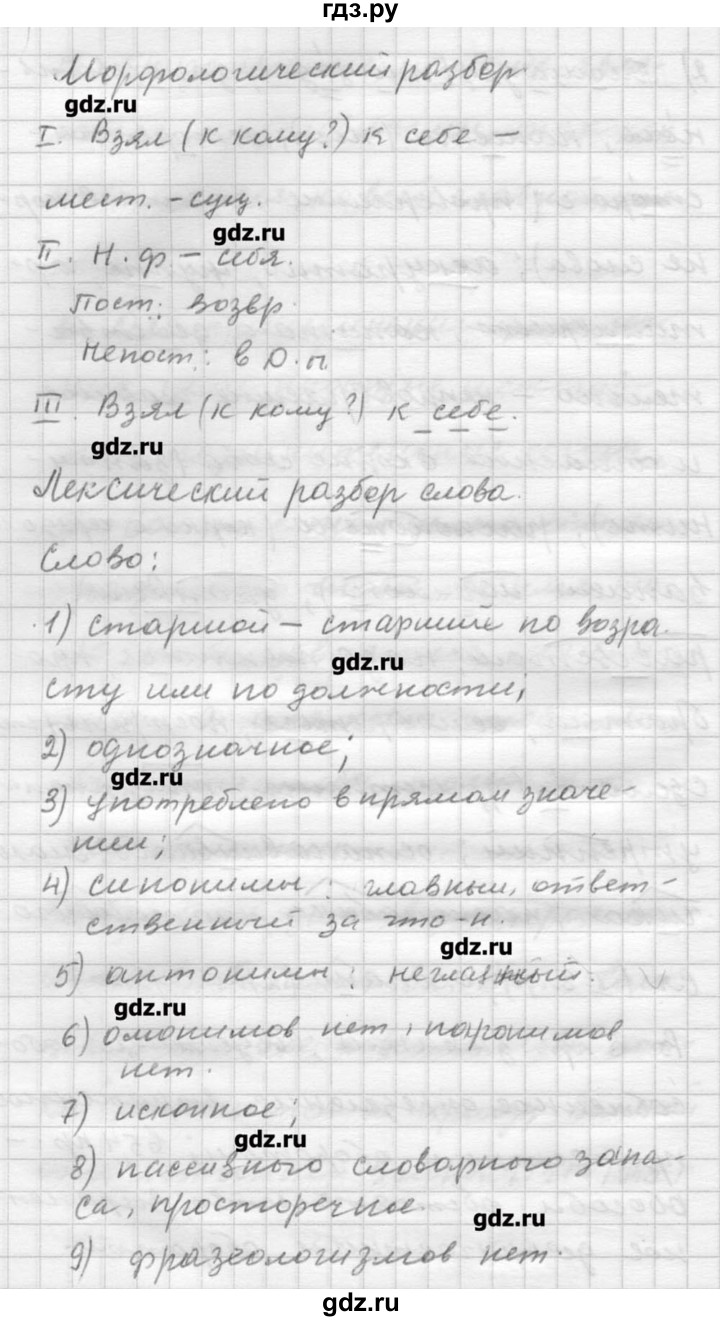 гдз.ру
Морфологический разбор
gdz.ru
I. Взял (к кому?) к себе –
мест. - сущ.
gdz.ru
II. Н. ф – себя.
Пост.: возвр.
Непост.: в D. п
III. Взял (к кому?) к себе.
gdz.ru
Лексический разбор слова.
Слово:
1) старшой – старший по возра-
gdz.ru
сту или по должности;
2) однозначное;
gdz.ru
3) употреблено в прямом значе-
нии;
4) синонимы: главный, ответ-
ственный за что-н.
gdz.ru
5) антонимы: неглавный.
gdz.ru
6) омонимов нет, паронимов
нет.
7) исконное;
gdz.ru
8) пассивного словарного запа-
са, просторечное
gdz.ru
9) фразеологизмов нет.
gdz.ru